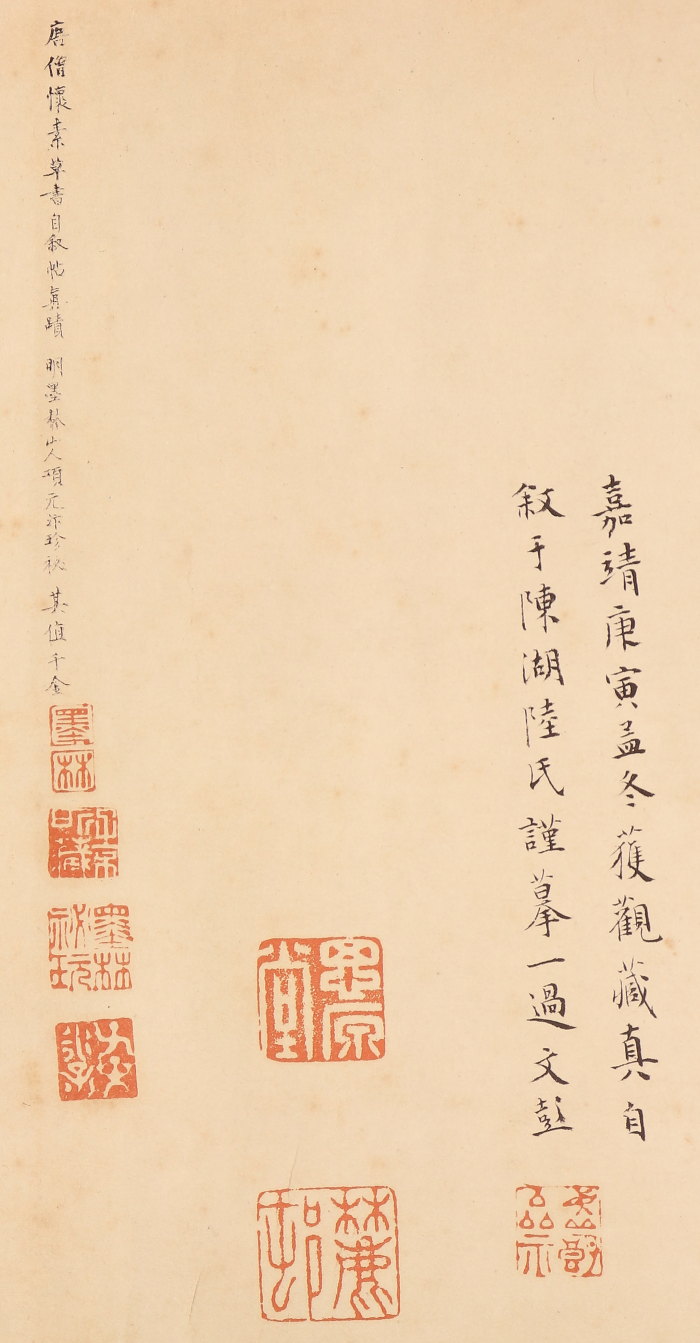 嘉靖庚寅孟冬獲觀藏真自
敘于陳湖陸氏謹摹一過文彭
唐僧懷素草書自叙帖真蹟 明墨林山人項元汴珍秘 其值千金
墨林
墨林祕玩